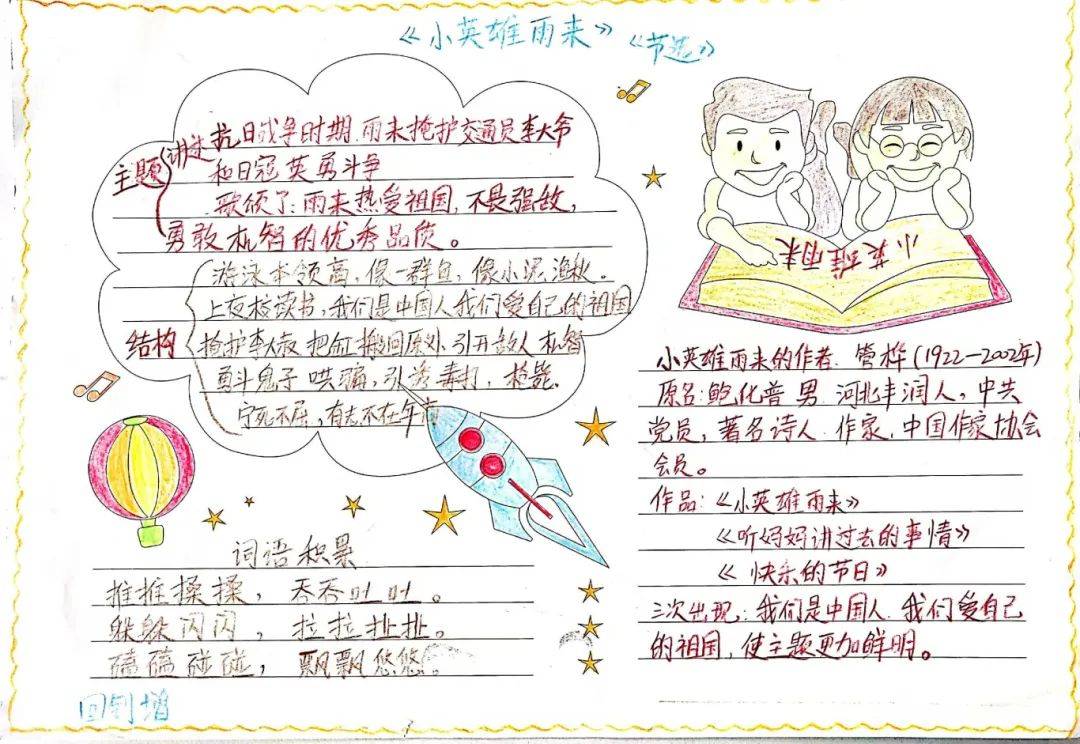 《小英雄雨来》《节选》
主题 讲述抗日战争时期.雨来掩护交通员李大爷
和日冠英勇斗争
歌颂了:雨来热爱祖国,不畏强敌,
勇敢机智的优秀品质。
结构
游泳本领高,像一群鱼,像小泥渔秋。
上夜校读书,我们是中国人我们爱自己的祖国
掩护李大叔 把缸搬回原处 引开敌人 机智
勇斗鬼子 哄骗,引诱毒打,枪毙.
宁死不屈,有志不在年高
小英雄雨来
小英雄雨来的作者.管桦(1922—2002年)
原名:鲍化普 男 河北丰润人,中共
党员,著名诗人.作家,中国作家协会
会员。
作品:《小英雄雨来》
《听妈妈讲过去的事情》
《快乐的节日》
三次出现:我们是中国人.我们爱自己
的祖国,使主题更加鲜明。
词语积累
推推搡搡,吞吞吐吐。
躲躲闪闪,拉拉扯扯。
磕磕碰碰,飘飘悠悠。